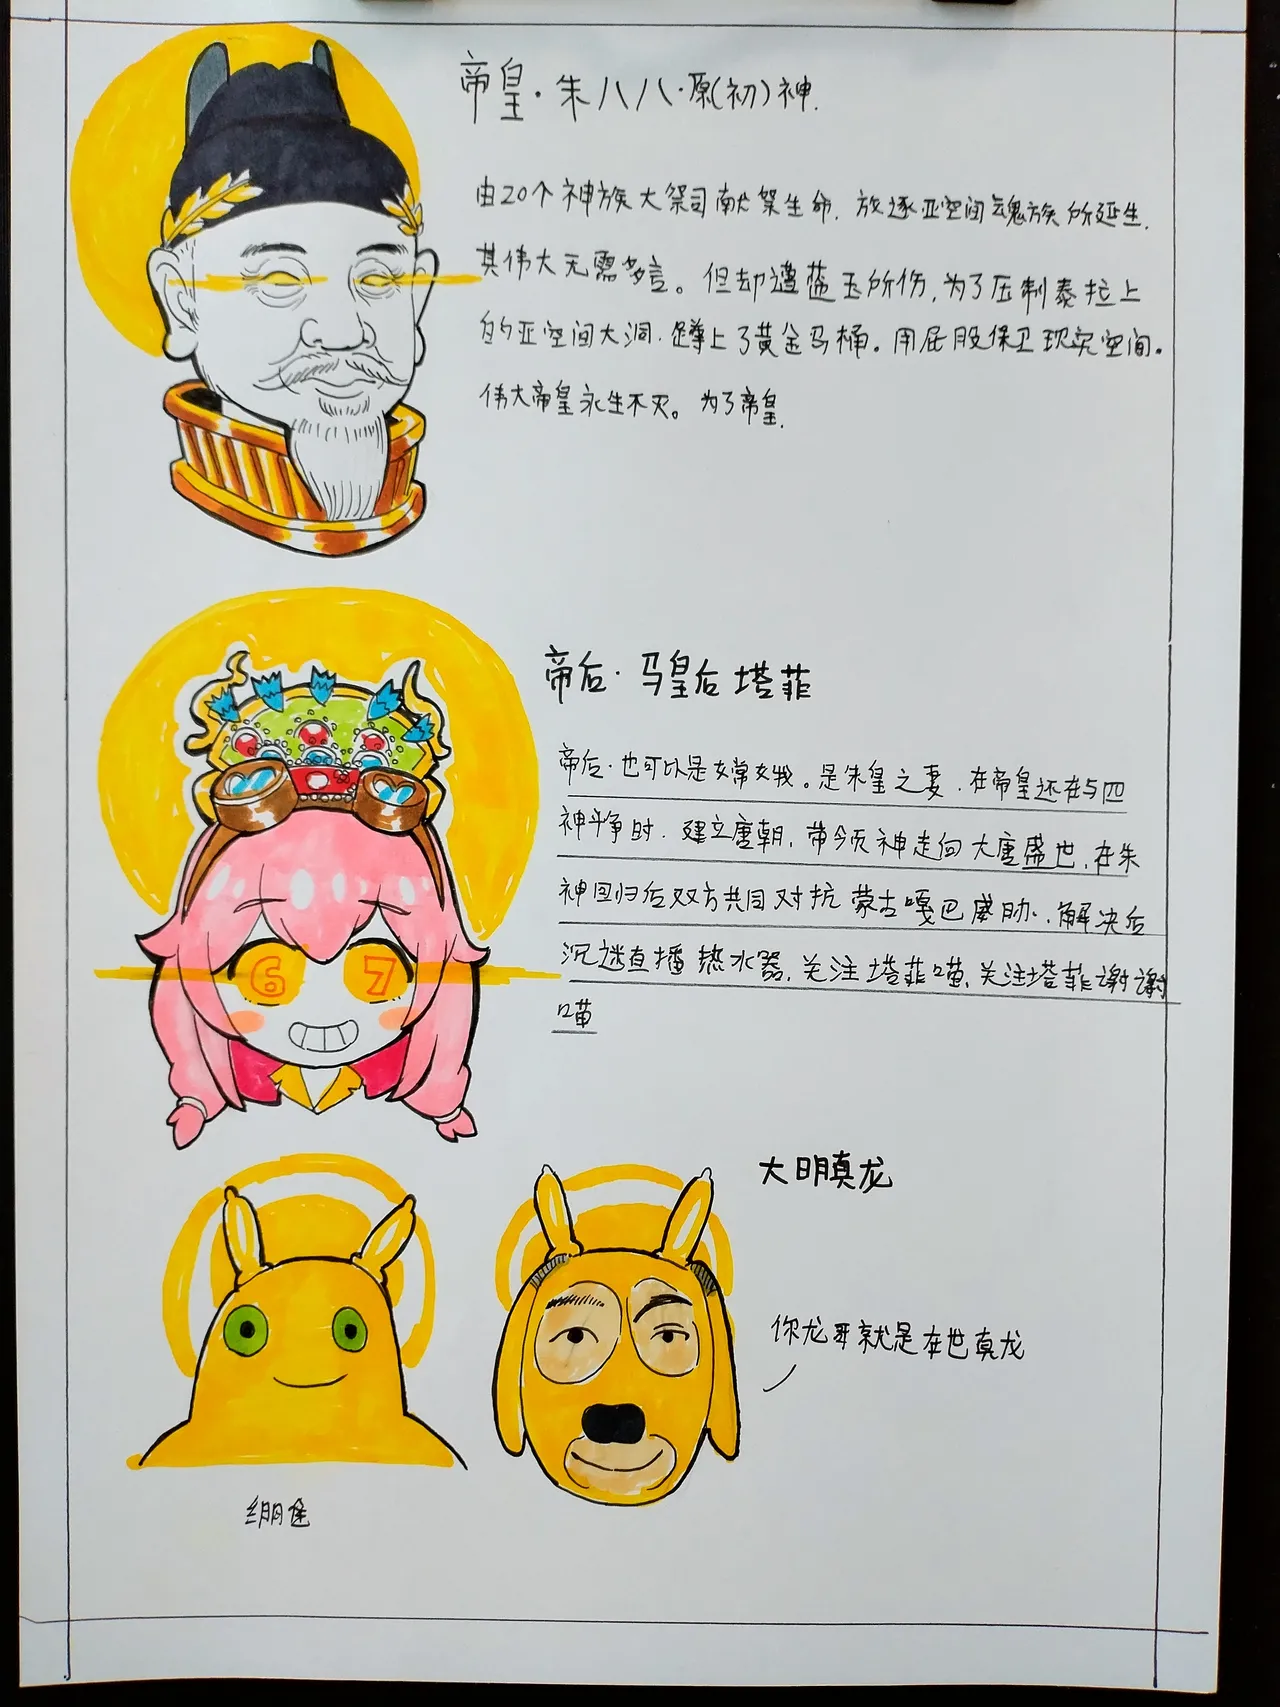 帝皇·朱八八·原(初)神.
由20个神族大祭司献祭生命.放逐亚空间魂族所延生.
其伟大无需多言。但却遭蓝玉所伤,为了压制泰拉上
的亚空间大洞.蹲上了黄金马桶。用屁股保卫现实空间。
伟大帝皇永生不灭。为了帝皇.
帝后·马皇后塔菲
帝后·也可以是女常女我。是朱皇之妻.在帝皇还在与四
神斗争时.建立唐朝,带领神走向大唐盛世,在朱
神回归后双方共同对抗蒙古嘎巴威胁.解决后
沉迷直播热水器,关注塔菲喵,关注塔菲谢谢
喵
6 7
大明真龙
你龙哥就是在世真龙